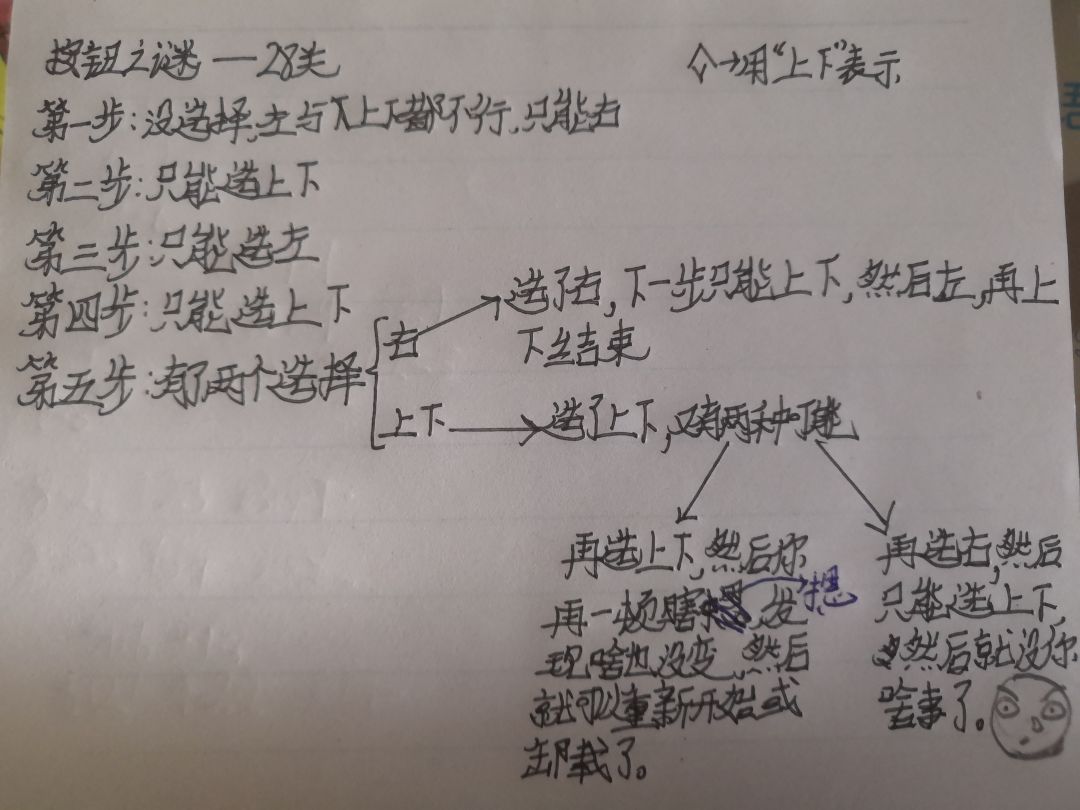 按钮之谜—28关
◇→用“上下”表示
第一步:没选择,左与上下都不行,只能右
第二步:只能选上下
第三步:只能选左
第四步:只能选上下
第五步:有了两个选择
右
选了右,下一步只能上下,然后左,再上
下结束
上下
选了上下,又有两种可能
再选上下,然后你
再一顿瞎想,发
现啥也没变,然后
就可以重新开始或
卸载了。
再选右,然后
只能选上下,
然后就没你
啥事了。